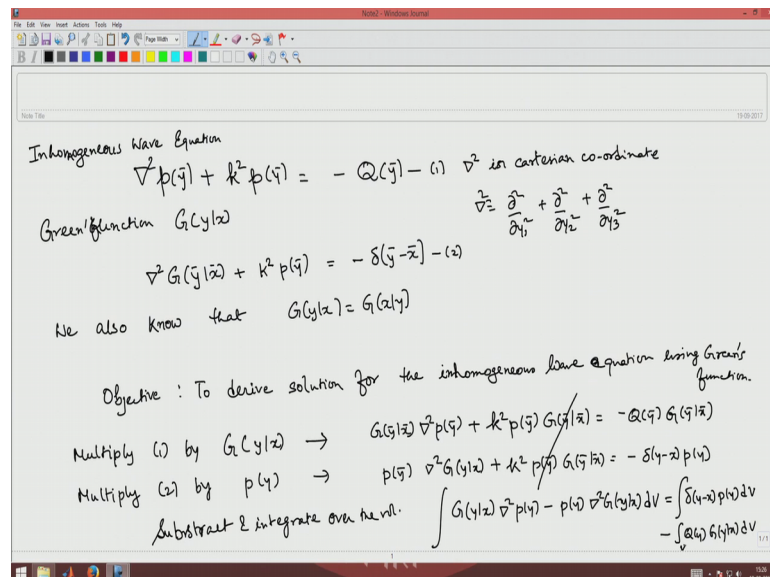 Note2 - Windows Journal
File Edit View Insert Actions Tools Help
Page Width
B I
Note Title 19-09-2017
Inhomogeneous Wave Equation
∇²p(ȳ) + k²p(ȳ) = - Q(ȳ) - (1) ∇² in cartesian co-ordinate
∇² = ∂²/∂y₁² + ∂²/∂y₂² + ∂²/∂y₃²
Green's function G(y|x)
∇²G(ȳ|x̄) + k²p(ȳ) = - δ(ȳ-x̄) - (2)
We also know that G(y|x) = G(x|y)
Objective : To derive solution for the inhomogeneous wave equation using Green's function.
Multiply (1) by G(y|x) → G(ȳ|x̄) ∇²p(ȳ) + k²p(ȳ) G(ȳ|x̄) = -Q(ȳ) G(ȳ|x̄)
Multiply (2) by p(y) → p(ȳ) ∇²G(y|x) + k²p(ȳ) G(ȳ|x̄) = - δ(y-x) p(y)
Substract & integrate over the vol. ∫ G(y|x) ∇²p(y) - p(y) ∇²G(y|x) dV = ∫δ(y-x) p(y) dV
- ∫ᵥ Q(y) G(y|x) dV
1
1/1
15:26